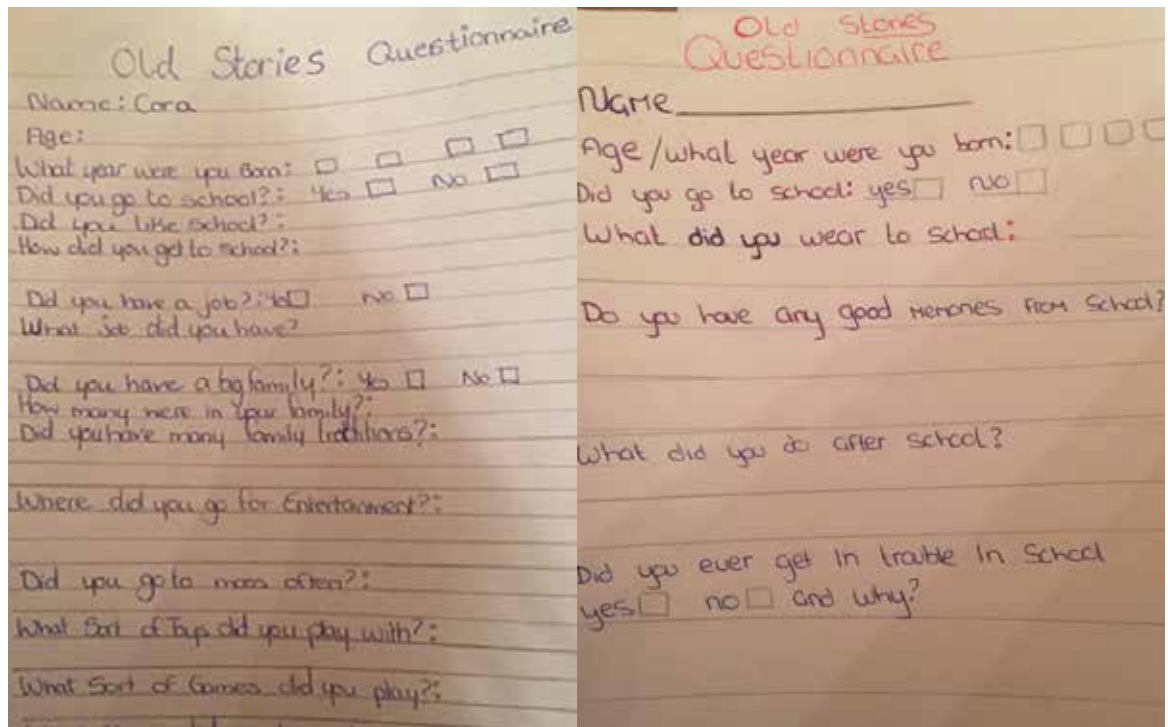 Old Stories Questionnaire
Name: Cora
Age:
What year were you Born:
Did you go to school?: Yes No
Did you like school?:
How did you get to school?:
Did you have a job?: Yes No
What job did you have?
Did you have a big family?: Yes No
How many were in your family?:
Did you have many family traditions?:
Where did you go for Entertainment?:
Did you go to mass often?:
What Sort of Toys did you play with?:
What Sort of Games did you play?:
Old Stories
Questionnaire
Name
Age/what year were you born:
Did you go to school: yes no
What did you wear to school:
Do you have any good memories from school?
What did you do after school?
Did you ever get in trouble in school
yes no and why?